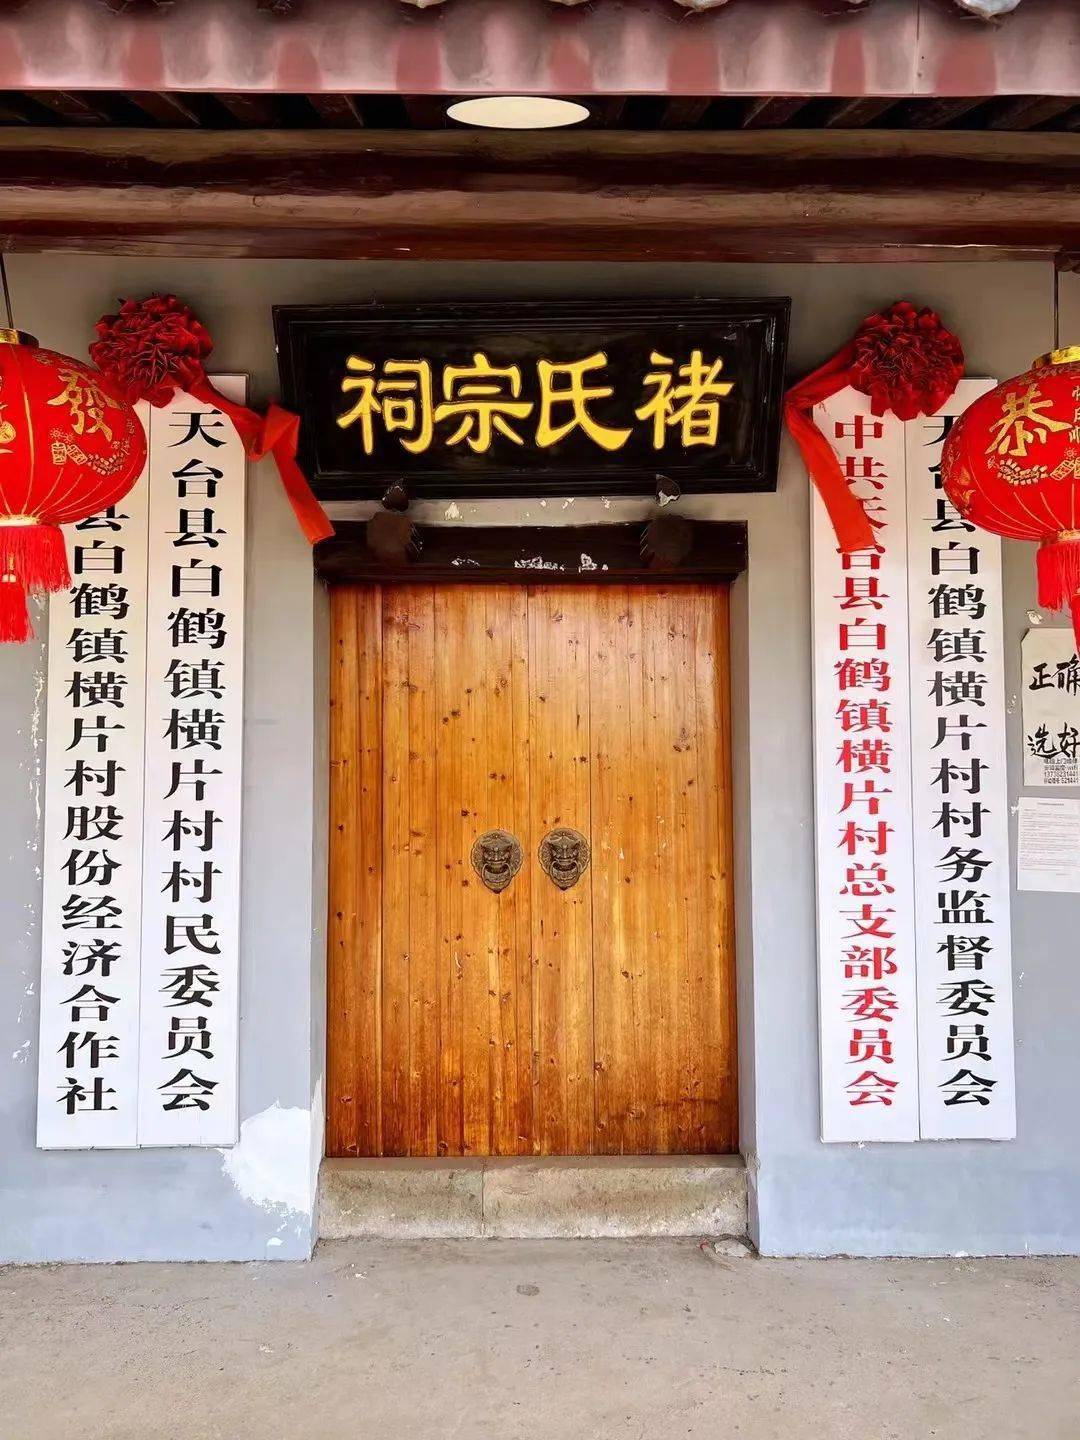 褚氏宗祠
發
恭
天台县白鹤镇横片村村务监督委员会
中共天台县白鹤镇横片村总支部委员会
天台县白鹤镇横片村村民委员会
县白鹤镇横片村股份经济合作社
正确
选好